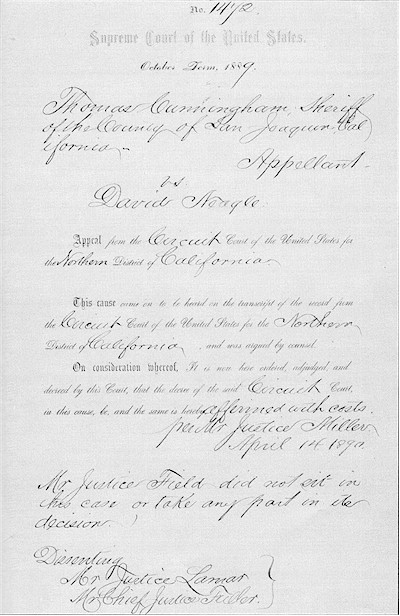 No. 1472.
Supreme Court of the United States.
October Term, 1889.
Thomas Cunningham, Sheriff
of the County of San Joaquin Cal
ifornia.
Appellant.
vs.
David Neagle.
Appeal from the Circuit Court of the United States for
the Northern District of California.
This cause came on to be heard on the transcript of the record from
the Circuit Court of the United States for the Northern
District of California, and was argued by counsel.
On consideration whereof, It is now here ordered, adjudged, and
decreed by this Court, that the decree of the said Circuit Court,
in this cause, be, and the same is hereby affirmed with costs.
per Mr Justice Miller
April 14 1890.
Mr. Justice Field did not sit in
this case or take any part in its
decision.
Dissenting
Mr Justice Lamar
Mr Chief Justice Fuller.